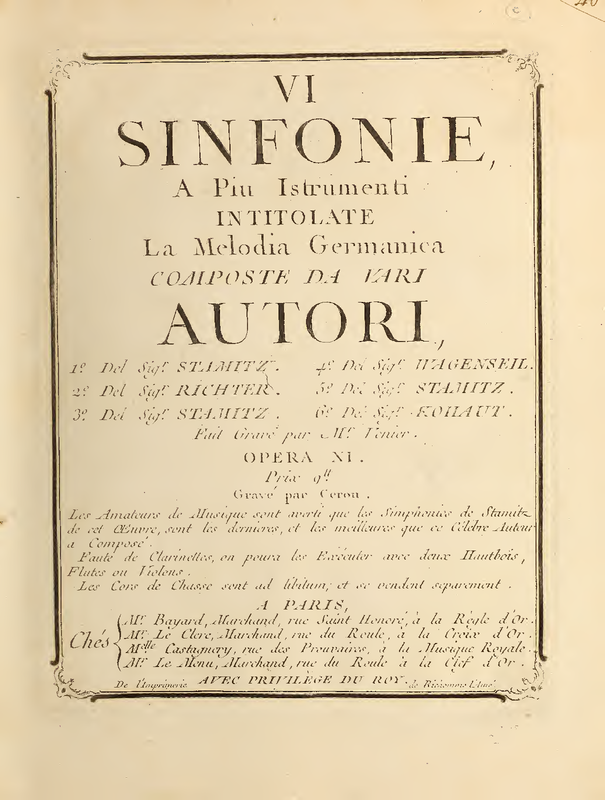 VI
SINFONIE,
A Piu Istrumenti
INTITOLATE
La Melodia Germanica
COMPOSTE DA VARI
AUTORI,
1º. Del Sigr. STAMITZ. 4º. Del Sigr. WAGENSEIL.
2º. Del Sigr. RICHTER. 5º. Del Sigr. STAMITZ.
3º. Del Sigr. STAMITZ. 6º. Del Sigr. KOHAUT.
Fait Gravé par Mr. Venier.
OPERA XI.
Prix 9tt
Gravé par Ceron.
Les Amateurs de Musique sont averti que les Simphonies de Stamitz
de cet Œuvre, sont les dernieres, et les meilleures que ce Célebre Auteur
a Composé.
Faute de Clarinettes, on poura les Exécuter avec deux Hautbois,
Flutes ou Violons.
Les Cors de Chasse sont ad libitum; et se vendent separement.
A PARIS,
Chés
Mr. Bayard, Marchand, rue Saint Honoré, à la Règle d'Or.
Mr. Le Clerc, Marchand, rue du Roule, à la Croix d'Or.
Melle Castagnery, rue des Prouvaires, à la Musique Royale.
Mr. Le Menu, Marchand, rue du Roule à la Clef d'Or.
De l'Imprimerie AVEC PRIVILÈGE DU ROY. de Richomme L'Ainé